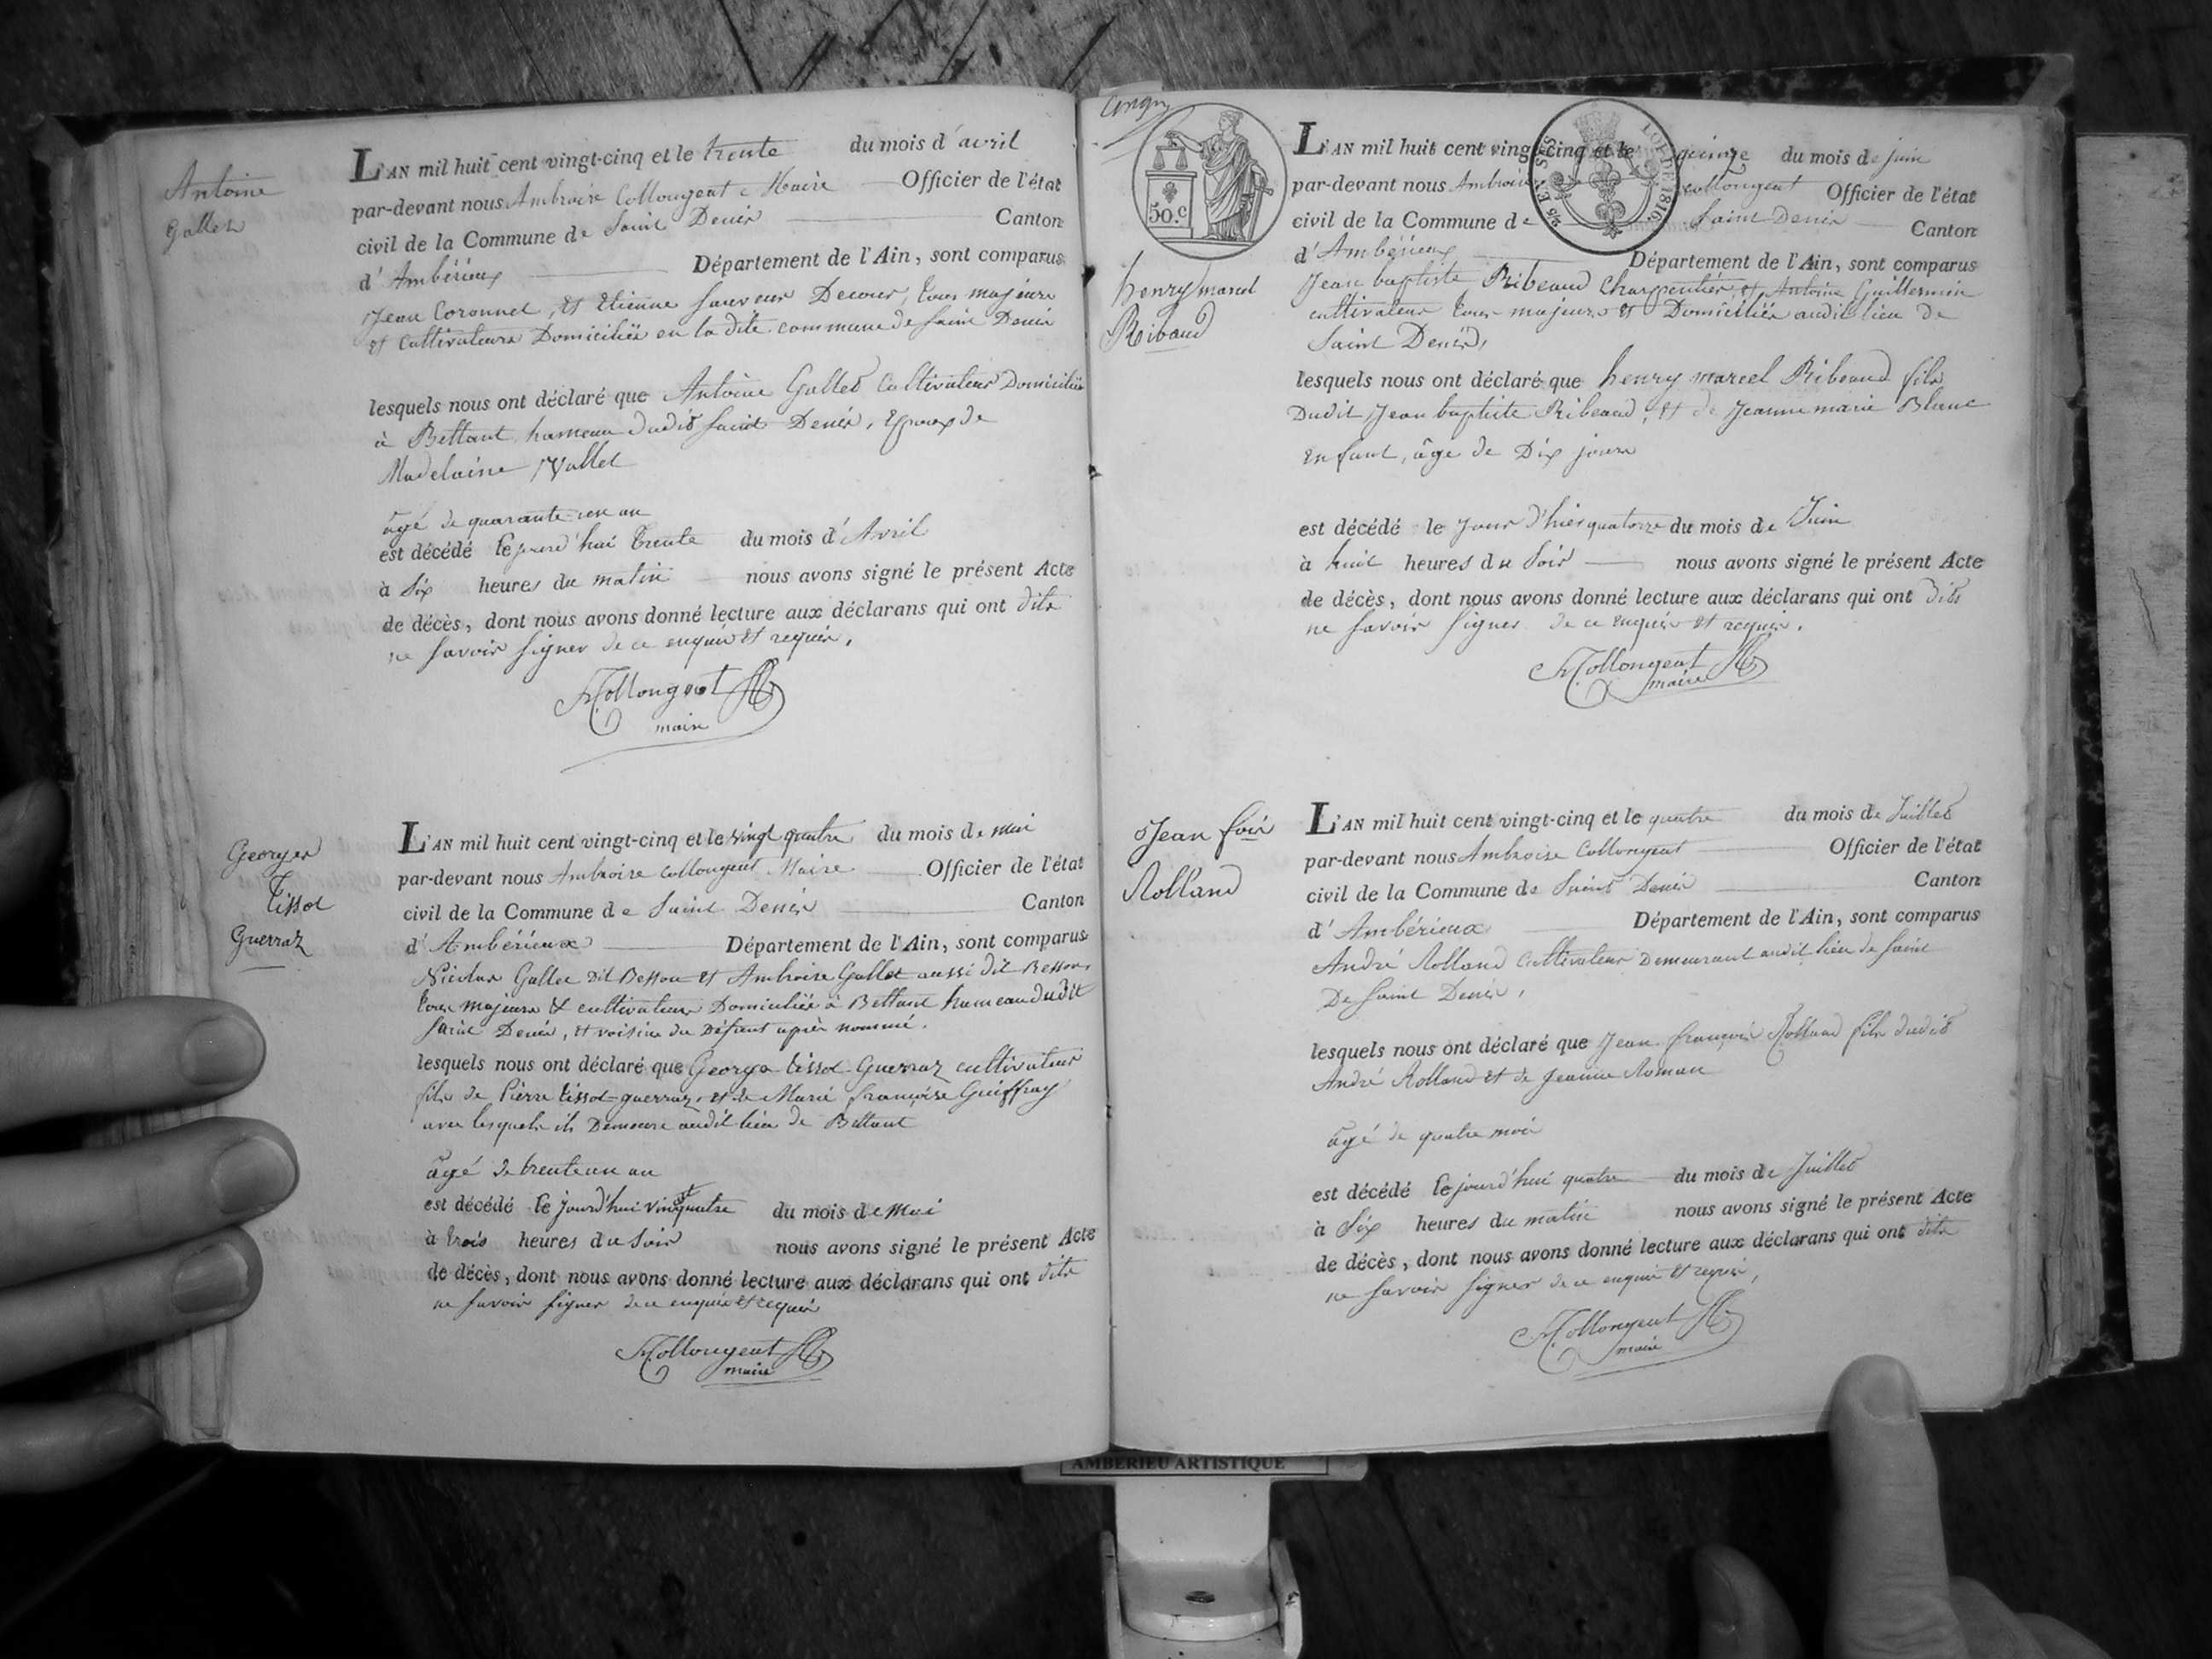 Antoine
Gallet
L'AN mil huit cent vingt-cinq et le trente du mois d'avril
par-devant nous Ambroise Collongeat Maire Officier de l'état
civil de la Commune de Saint Denis Canton
d'Ambérieux Département de l'Ain, sont comparus
Jean Coronnel, et Etienne Sauveur Decour, tous majeurs
et cultivateurs Domiciliés en la dite commune de Saint Denis
lesquels nous ont déclaré que Antoine Gallet Cultivateur Domicilié
à Bettant hameau dudit Saint Denis, Epoux de
Madelaine Vallet
âgé de quarante-un an
est décédé le jourd'hui trente du mois d'Avril
à Six heures du matin nous avons signé le présent Acte
de décès, dont nous avons donné lecture aux déclarans qui ont dits
ne savoir signer de ce enquis et requis.
Collongeat
maire
Georges
Tissot
Guerraz
L'AN mil huit cent vingt-cinq et le vingt quatre du mois de mai
par-devant nous Ambroise Collongeat Maire Officier de l'état
civil de la Commune de Saint Denis Canton
d'Ambérieux Département de l'Ain, sont comparus
Nicolas Gallet dit Besson et Ambroise Gallet aussi dit Besson,
tous majeurs & cultivateurs Domiciliés à Bettant hameau dudit
Saint Denis, et voisins du Défunt après nommé.
lesquels nous ont déclaré que George tissot-Guerraz cultivateur
fils de Pierre tissot-guerraz, et de Marie françoise Guiffray
avec lesquels ils Demeure audit lieu de Bettant
âgé de trente un an
est décédé le jourd'hui vingt quatre du mois de Mai
à trois heures du Soir nous avons signé le présent Acte
de décès, dont nous avons donné lecture aux déclarans qui ont dits
ne savoir signer de ce enquis et requis
Collongeat
maire
50.c
henry marcel
Ribaud
L'AN mil huit cent vingt-cinq et le quinze du mois de juin
par-devant nous Ambroise Collongeat Officier de l'état
civil de la Commune de Saint Denis Canton
d'Ambérieux Département de l'Ain, sont comparus
Jean baptiste Ribeaud Charpentier et Antoine Guillermin
cultivateur tous majeurs et Domiciliés audit lieu de
Saint Denis,
lesquels nous ont déclaré que henry marcel Ribeaud fils
Dudit Jean baptiste Ribeaud, et de Jeanne marie Blanc
enfant, âge de Dix jours
est décédé le jour d'hier quatorze du mois de Juin
à huit heures du Soir nous avons signé le présent Acte
de décès, dont nous avons donné lecture aux déclarans qui ont dits
ne savoir signer de ce enquis et requis.
Collongeat
maire
Jean fois
Rolland
L'AN mil huit cent vingt-cinq et le quatre du mois de Juillet
par-devant nous Ambroise Collongeat Officier de l'état
civil de la Commune de Saint Denis Canton
d'Ambérieux Département de l'Ain, sont comparus
André Rolland Cultivateur Demeurant audit lieu de Saint
De Saint Denis,
lesquels nous ont déclaré que Jean françois Rolland fils dudit
André Rolland et de Jeanne Roman
âgé de quatre mois
est décédé le jourd'hui quatre du mois de Juillet
à Six heures du matin nous avons signé le présent Acte
de décès, dont nous avons donné lecture aux déclarans qui ont dits
ne savoir signer de ce enquis et requis,
Collongeat
maire
AMBERIEU ARTISTIQUE